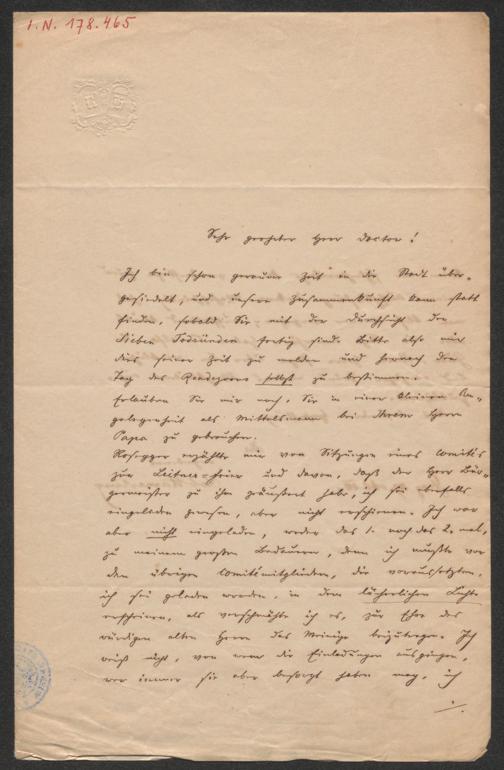 I. N. 178.465
Sehr geehrter Herr Doctor!
Ich bin schon geraume Zeit in die Stadt über-
gesiedelt, und unsere Zusammenkunft kann statt
finden, sobald Sie mit der Durchsicht der
Sieben Todsünden fertig sind. Bitte also mir
dies seiner Zeit zu melden und hernach den
Tag des Rendezvous selbst zu bestimmen.
Erlauben Sie mir noch, Sie in einer kleinen An-
gelegenheit als Mittelsmann bei Ihrem Herrn
Papa zu gebrauchen.
Rosegger erzählte mir von Sitzungen eines Comités
zur Leitner-Feier und davon, daß der Herr Bür-
germeister zu ihm geäußert habe, ich sei ebenfalls
eingeladen gewesen, aber nicht erschienen. Ich war
aber nicht eingeladen, weder das 1. noch das 2. mal,
zu meinem großen Bedauern, denn ich mußte vor
den übrigen Comitémitgliedern, die voraussetzten,
ich sei geladen worden, in dem lächerlichen Lichte
erscheinen, als verschmähte ich es, zur Ehre des
würdigen alten Herrn das Meinige beizutragen. Ich
weiß nicht, von wem die Einladungen ausgingen,
wer immer sie aber besorgt haben mag, ich
./.